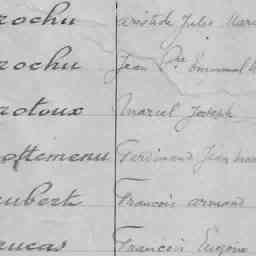 rochu Aristide Jules Mari
rochu Jean Pre Emmanuel
rotoux Marcel Joseph
ottemenu Ferdinand Jean
aubert Francois Armand
aucas Francois Eugène